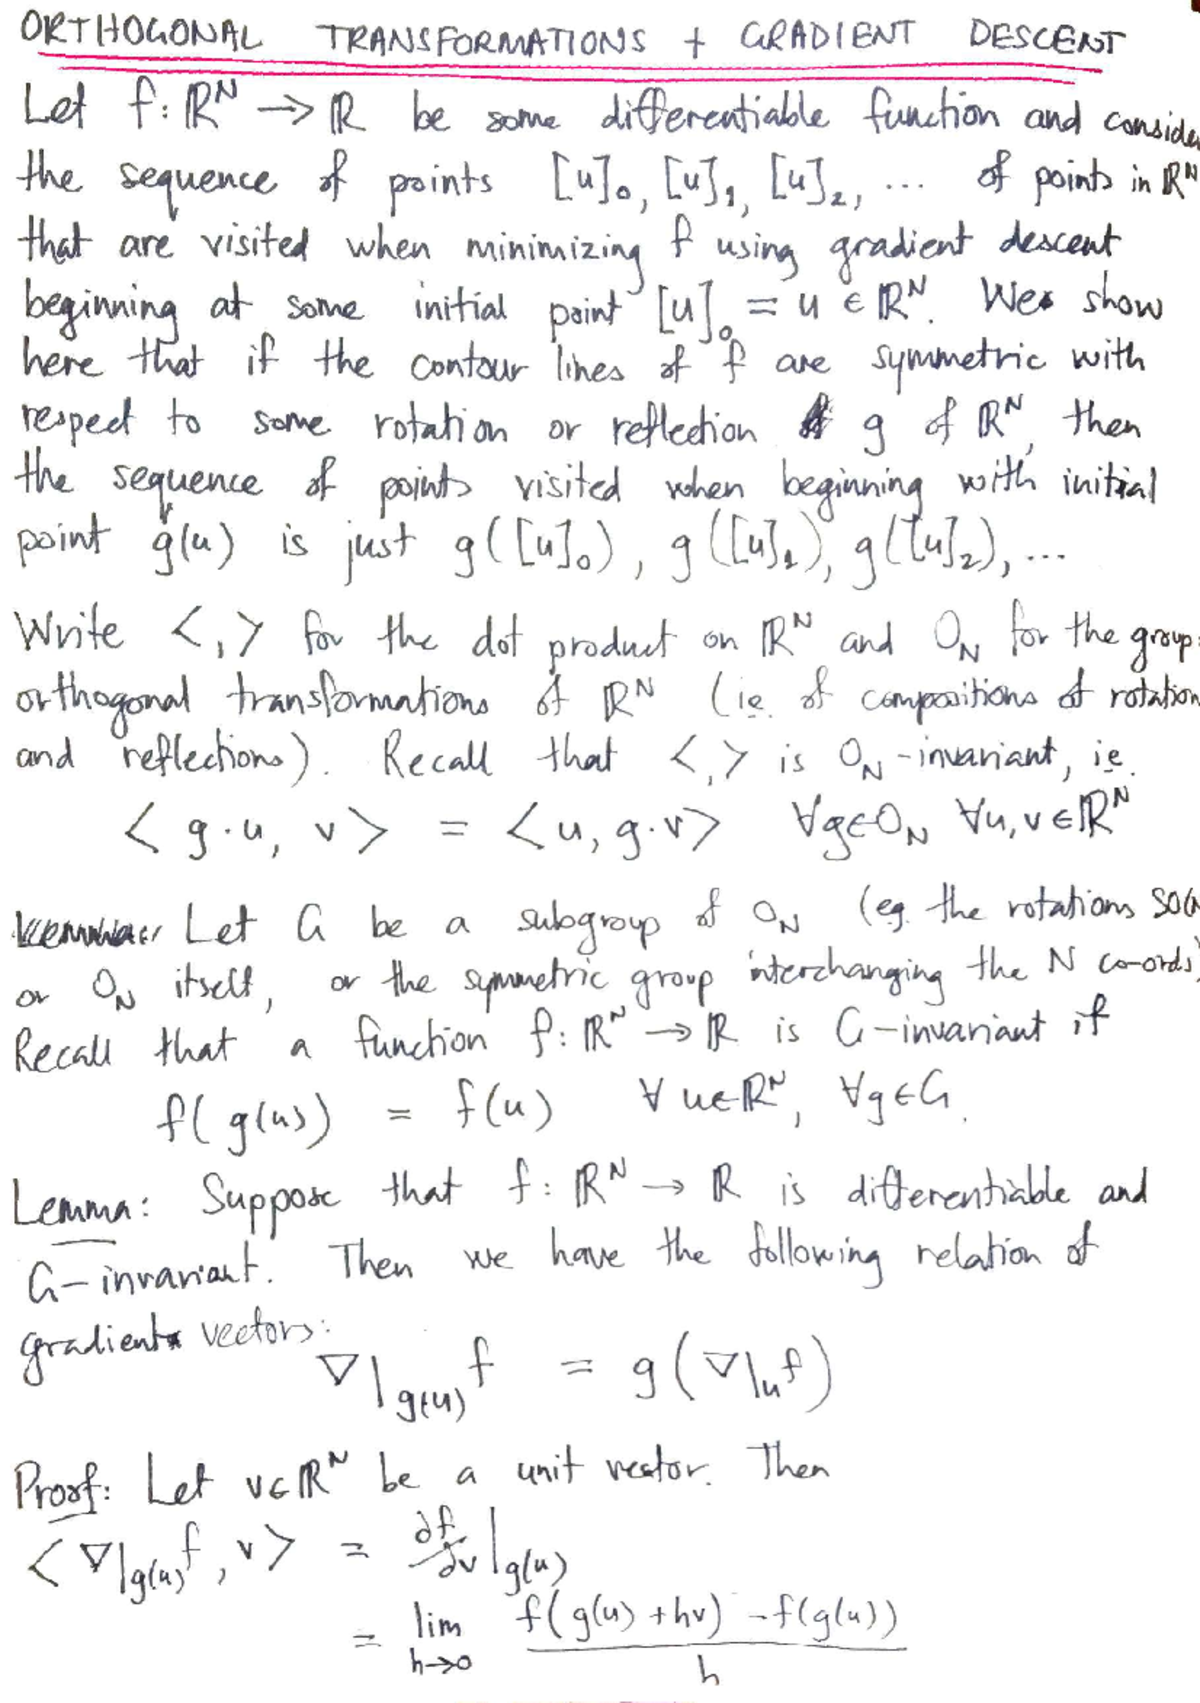 ORTHOGONAL TRANSFORMATIONS + GRADIENT DESCENT
Let f: ℝᴺ → ℝ be some differentiable function and conside
the sequence of points [u]₀, [u]₁, [u]₂, ... of points in ℝᴺ
that are visited when minimizing f using gradient descent
beginning at some initial point [u]₀ = u ∈ ℝᴺ. We show
here that if the contour lines of f are symmetric with
respect to some rotation or reflection g of ℝᴺ, then
the sequence of points visited when beginning with initial
point g(u) is just g([u]₀), g([u]₁), g([u]₂), ...
Write <,> for the dot product on ℝᴺ and O_N for the group
orthogonal transformations of ℝᴺ (ie. of compositions of rotation
and reflections). Recall that <,> is O_N-invariant, ie.
<g·u, v> = <u, g·v> ∀g∈O_N ∀u,v∈ℝᴺ
Let G be a subgroup of O_N (eg. the rotations SO
or O_N itself, or the symmetric group interchanging the N co-ords)
Recall that a function f: ℝᴺ → ℝ is G-invariant if
f(g(u)) = f(u) ∀ u∈ℝᴺ, ∀g∈G.
Lemma: Suppose that f: ℝᴺ → ℝ is differentiable and
G-invariant. Then we have the following relation of
gradient vectors:
∇|_g(u) f = g(∇|_u f)
Proof: Let v∈ℝᴺ be a unit vector. Then
<∇|_g(u) f, v> = ∂f/∂v |_g(u)
= lim h→0 f(g(u) + hv) - f(g(u)) / h